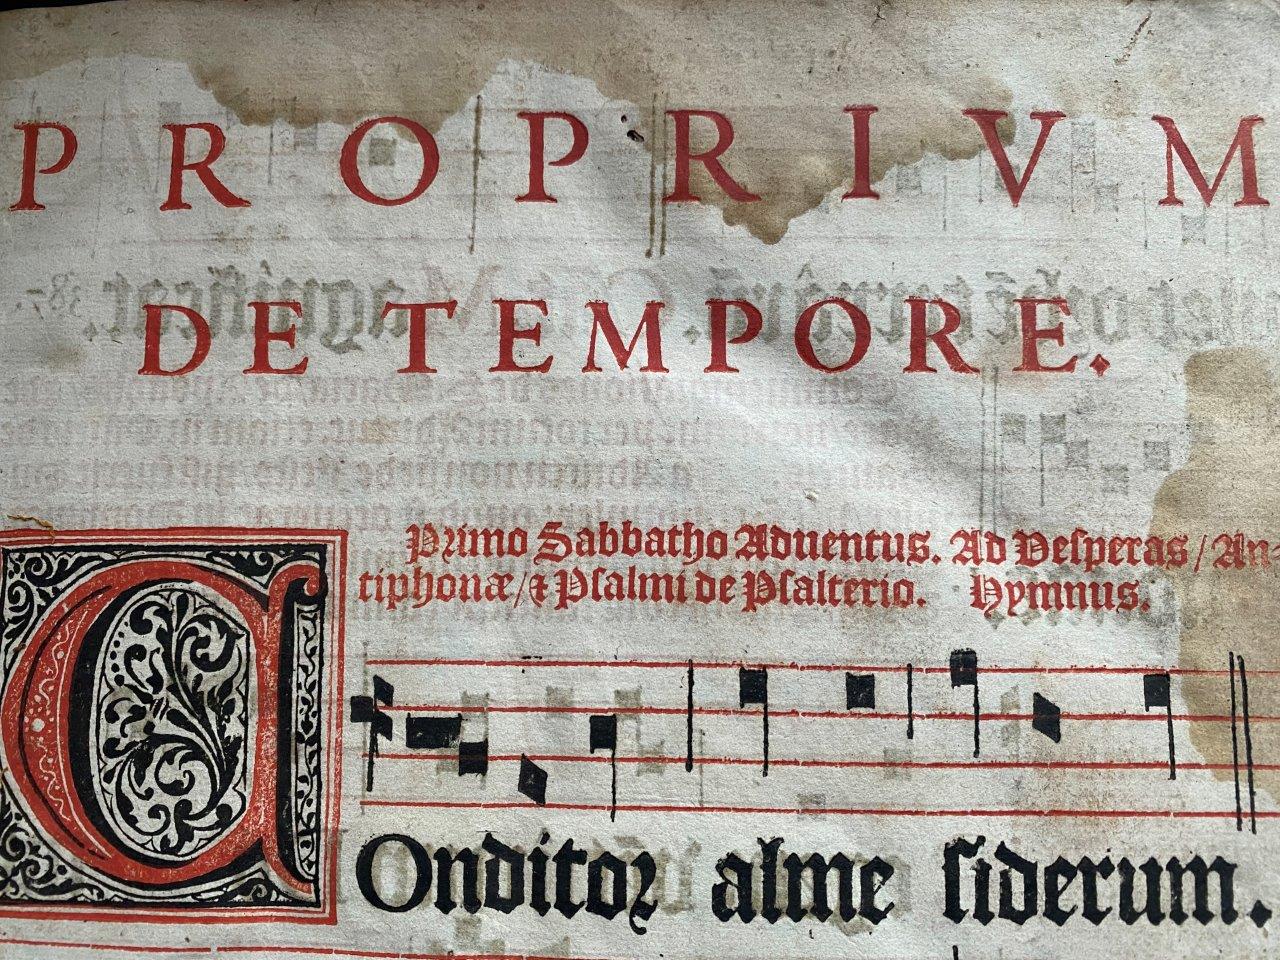 PROPRIVM
DE TEMPORE.
Primo Sabbatho Aduentus. Ad Vesperas / An-
tiphonæ / & Psalmi de Psalterio. Hymnus.
COnditor alme siderum.